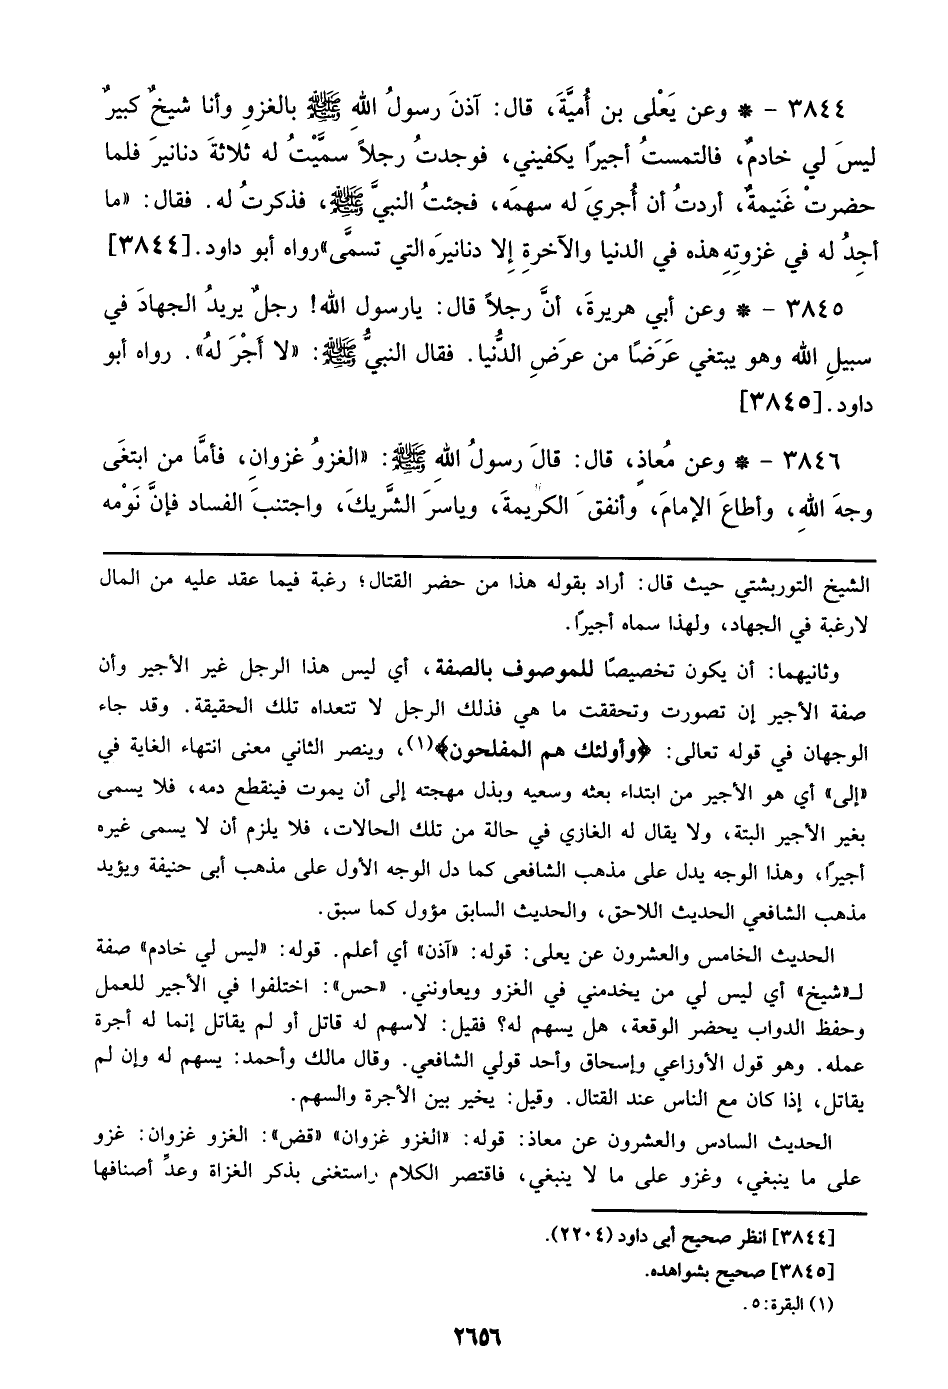 ٣٨٤٤ - * وعن يَعْلى بن أُميَّةَ، قال: آذنَ رسولُ اللهِ ﷺ بالغزوِ وأنا شيخٌ كبيرٌ
ليسَ لي خادمٌ، فالتمستُ أجيرًا يكفيني، فوجدتُ رجلاً سمَّيْتُ له ثلاثةَ دنانيرَ فلما
حضرتْ غَنيمةٌ، أردتُ أن أُجريَ له سهمَه، فجئتُ النبيَّ ﷺ، فذكرتُ له. فقال: «ما
أجِدُ له في غزوتِهِ هذه في الدنيا والآخرةِ إلا دنانيرَه التي تسمَّى» رواه أبو داود. [٣٨٤٤]
٣٨٤٥ - * وعن أبي هريرةَ، أنَّ رجلاً قال: يارسول الله! رجلٌ يريدُ الجهادَ في
سبيلِ الله وهو يبتغي عَرَضًا من عرَضِ الدُّنيا. فقال النبيُّ ﷺ: «لا أَجْرَ لهُ». رواه أبو
داود. [٣٨٤٥]
٣٨٤٦ - * وعن مُعاذٍ، قال: قالَ رسولُ اللهِ ﷺ: «الغزوُ غزوان، فأمَّا من ابتغَى
وجهَ اللهِ، وأطاعَ الإمامَ، وأنفقَ الكريمةَ، وياسرَ الشَّريكَ، واجتنبَ الفساد فإنَّ نَوْمه
الشيخ التوربشتي حيث قال: أراد بقوله هذا من حضر القتال؛ رغبة فيما عقد عليه من المال
لارغبة في الجهاد، ولهذا سماه أجيرًا.
وثانيهما: أن يكون تخصيصًا للموصوف بالصفة، أي ليس هذا الرجل غير الأجير وأن
صفة الأجير إن تصورت وتحققت ما هي فذلك الرجل لا تتعداه تلك الحقيقة. وقد جاء
الوجهان في قوله تعالى: ﴿وأولئك هم المفلحون﴾(١)، وينصر الثاني معنى انتهاء الغاية في
«إلى» أي هو الأجير من ابتداء بعثه وسعيه وبذل مهجته إلى أن يموت فينقطع دمه، فلا يسمى
بغير الأجير البتة، ولا يقال له الغازي في حالة من تلك الحالات، فلا يلزم أن لا يسمى غيره
أجيرًا، وهذا الوجه يدل على مذهب الشافعى كما دل الوجه الأول على مذهب أبى حنيفة ويؤيد
مذهب الشافعي الحديث اللاحق، والحديث السابق مؤول كما سبق.
الحديث الخامس والعشرون عن يعلى: قوله: «آذن» أي أعلم. قوله: «ليس لي خادم» صفة
لـ«شيخ» أي ليس لي من يخدمني في الغزو ويعاونني. «حس»: اختلفوا في الأجير للعمل
وحفظ الدواب يحضر الوقعة، هل يسهم له؟ فقيل: لاسهم له قاتل أو لم يقاتل إنما له أجرة
عمله. وهو قول الأوزاعي وإسحاق وأحد قولي الشافعي. وقال مالك وأحمد: يسهم له وإن لم
يقاتل، إذا كان مع الناس عند القتال. وقيل: يخير بين الأجرة والسهم.
الحديث السادس والعشرون عن معاذ: قوله: «الغزو غزوان» «قض»: الغزو غزوان: غزو
على ما ينبغي، وغزو على ما لا ينبغي، فاقتصر الكلام واستغنى بذكر الغزاة وعدِّ أصنافها
[٣٨٤٤] انظر صحيح أبى داود (٢٢٠٤).
[٣٨٤٥] صحيح بشواهده.
(١) البقرة: ٥.
٢٦٥٦